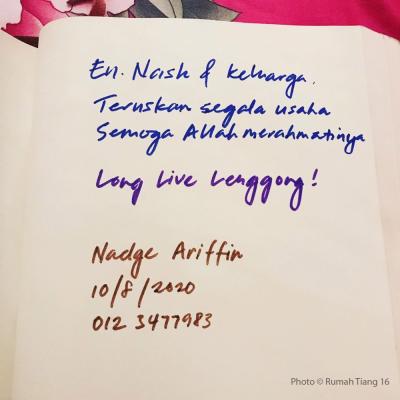 En. Nash & keluarga.
Teruskan segala usaha
Semoga Allah merahmatinya
Long Live Lenggong!
Nadge Ariffin
10/8/2020
012 3477983
Photo © Rumah Tiang 16